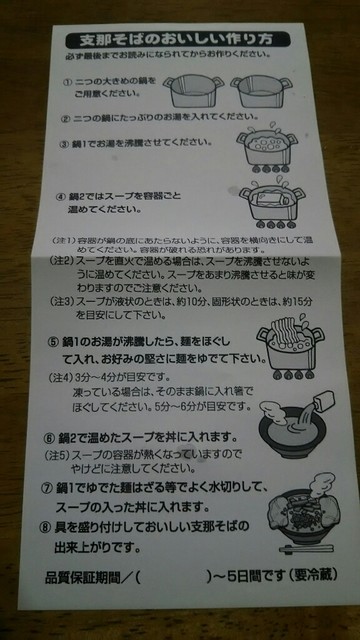 支那そばのおいしい作り方
必ず最後までお読みになられてからお作りください。
① 二つの大きめの鍋を
ご用意ください。
② 二つの鍋にたっぷりのお湯を入れてください。
③ 鍋1でお湯を沸騰させてください。
④ 鍋2ではスープを容器ごと
温めてください。
(注1)容器が鍋の底にあたらないように、容器を横向きにして温
めてください。容器が破れる恐れがあります。
(注2)スープを直火で温める場合は、スープを沸騰させないよ
うに温めてください。スープをあまり沸騰させると味が変
わりますのでご注意ください。
(注3)スープが液状のときは、約10分、固形状のときは、約15分
を目安にして下さい。
⑤ 鍋1のお湯が沸騰したら、麺をほぐし
て入れ、お好みの堅さに麺をゆでて下さい。
(注4)3分〜4分が目安です。
凍っている場合は、そのまま鍋に入れ箸で
ほぐしてください。5分〜6分が目安です。
⑥ 鍋2で温めたスープを丼に入れます。
(注5)スープの容器が熱くなっていますので
やけどに注意してください。
⑦ 鍋1でゆでた麺はざる等でよく水切りして、
スープの入った丼に入れます。
⑧ 具を盛り付けしておいしい支那そばの
出来上がりです。
品質保証期間/( )〜5日間です(要冷蔵)